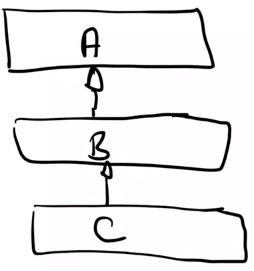 A
B
C